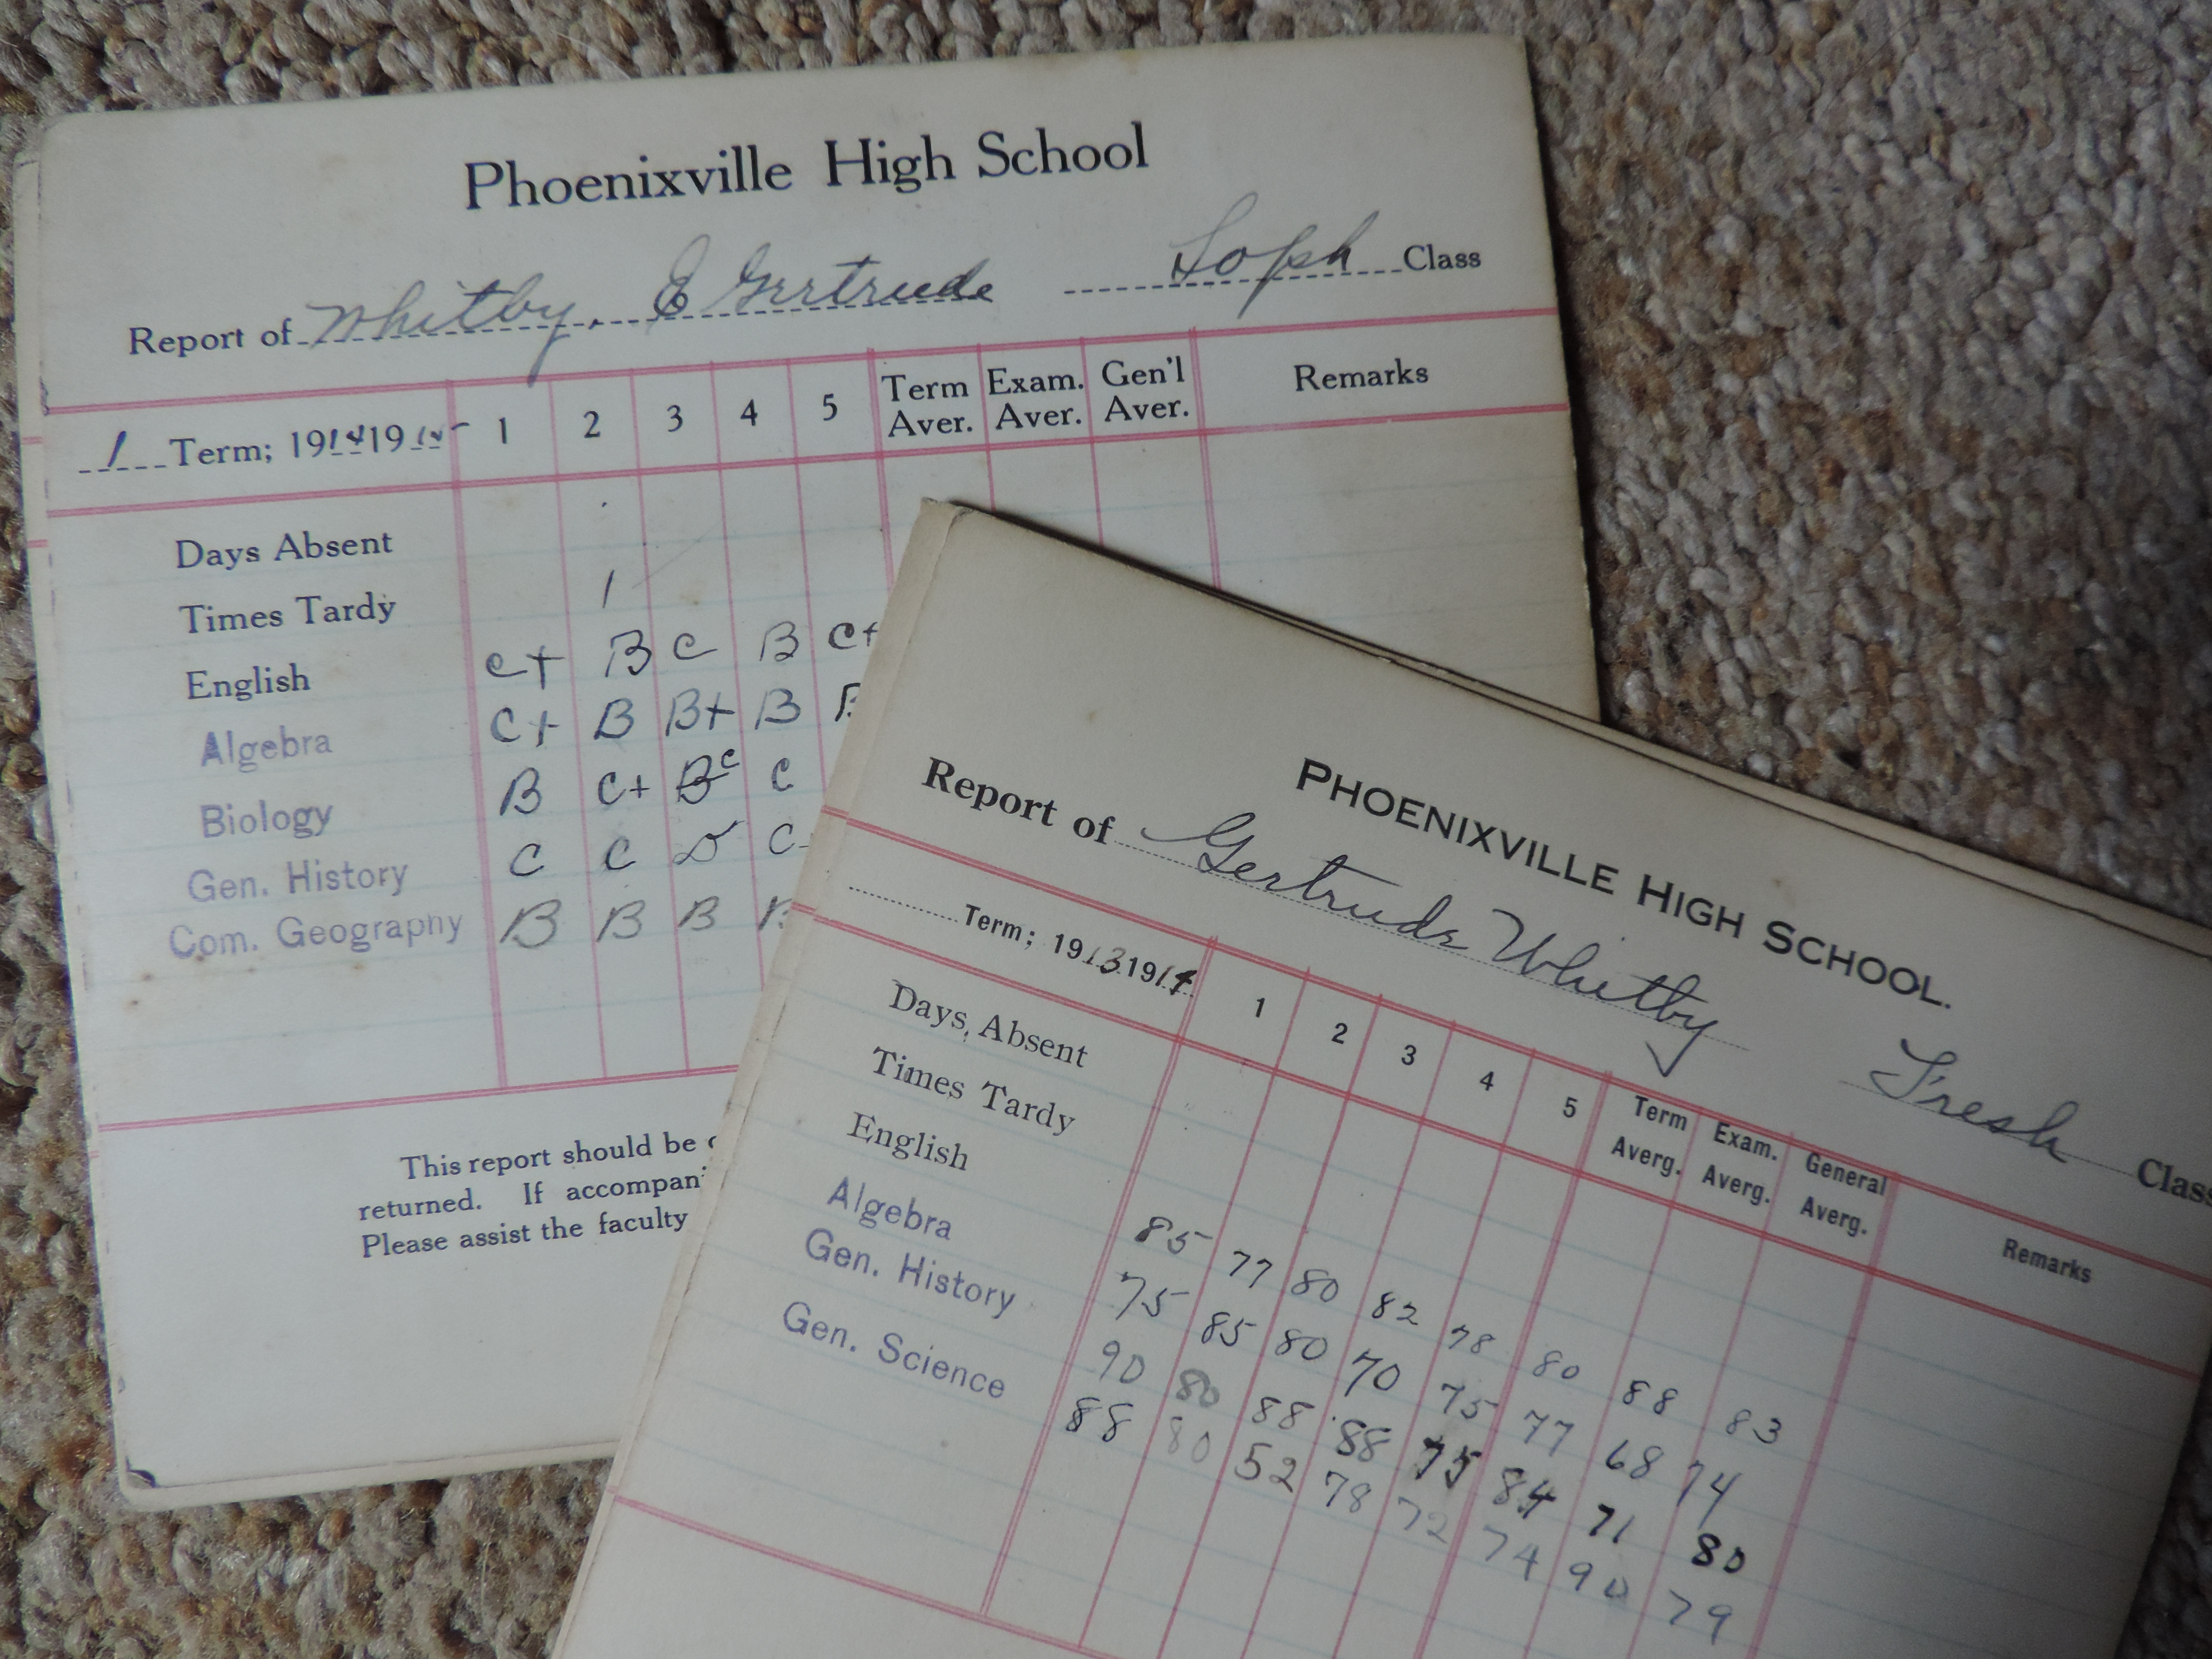 Phoenixville High School
Report of Whitby, E Gertrude Soph Class
1 Term; 1914 1915 1 2 3 4 5 Term Aver. Exam. Aver. Gen'l Aver. Remarks
Days Absent
Times Tardy 1
English C+ B C B C+
Algebra C+ B B+ B B
Biology B C+ B C C
Gen. History C C D C
Com. Geography B B B B
This report should be
returned. If accompani
Please assist the faculty
PHOENIXVILLE HIGH SCHOOL.
Report of Gertrude Whitby Fresh Class
Term; 1913 1914 1 2 3 4 5 Term Averg. Exam. Averg. General Averg. Remarks
Days Absent
Times Tardy
English 85 77 80 82 78 80 88 83
Algebra 75 85 80 70 75 77 68 74
Gen. History 90 80 88 88 75 84 71 80
Gen. Science 88 80 52 78 72 74 90 79